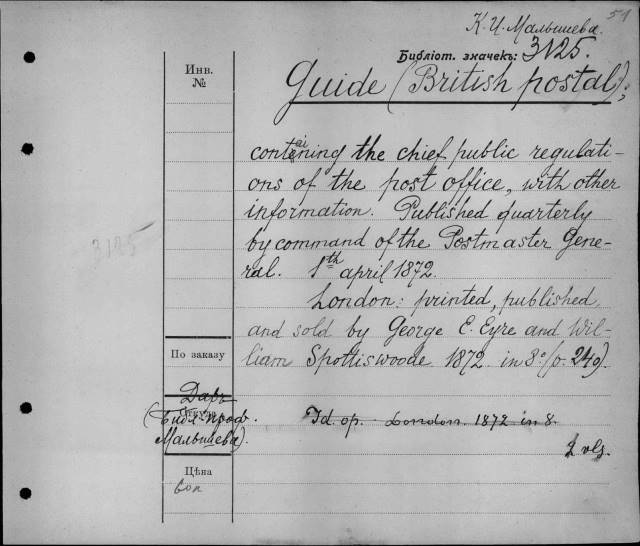 51
К. И. Малышева.
Библіот. значекъ: 3125.
Инв.
№
Guide (British postal);
contaening the chief public regulati-
ons of the post office, with other
information. Published quarterly
by command of the Postmaster Gene-
ral. 1th april 1872.
3125
London: printed, published
and sold by George E. Eyre and Wil-
liam Spottiswoode 1872 in 8º (p. 240).
По заказу
Даръ
(Библ. проф.
Малышева).
Id. op. London. 1872 in 8.
vls.
Цѣна